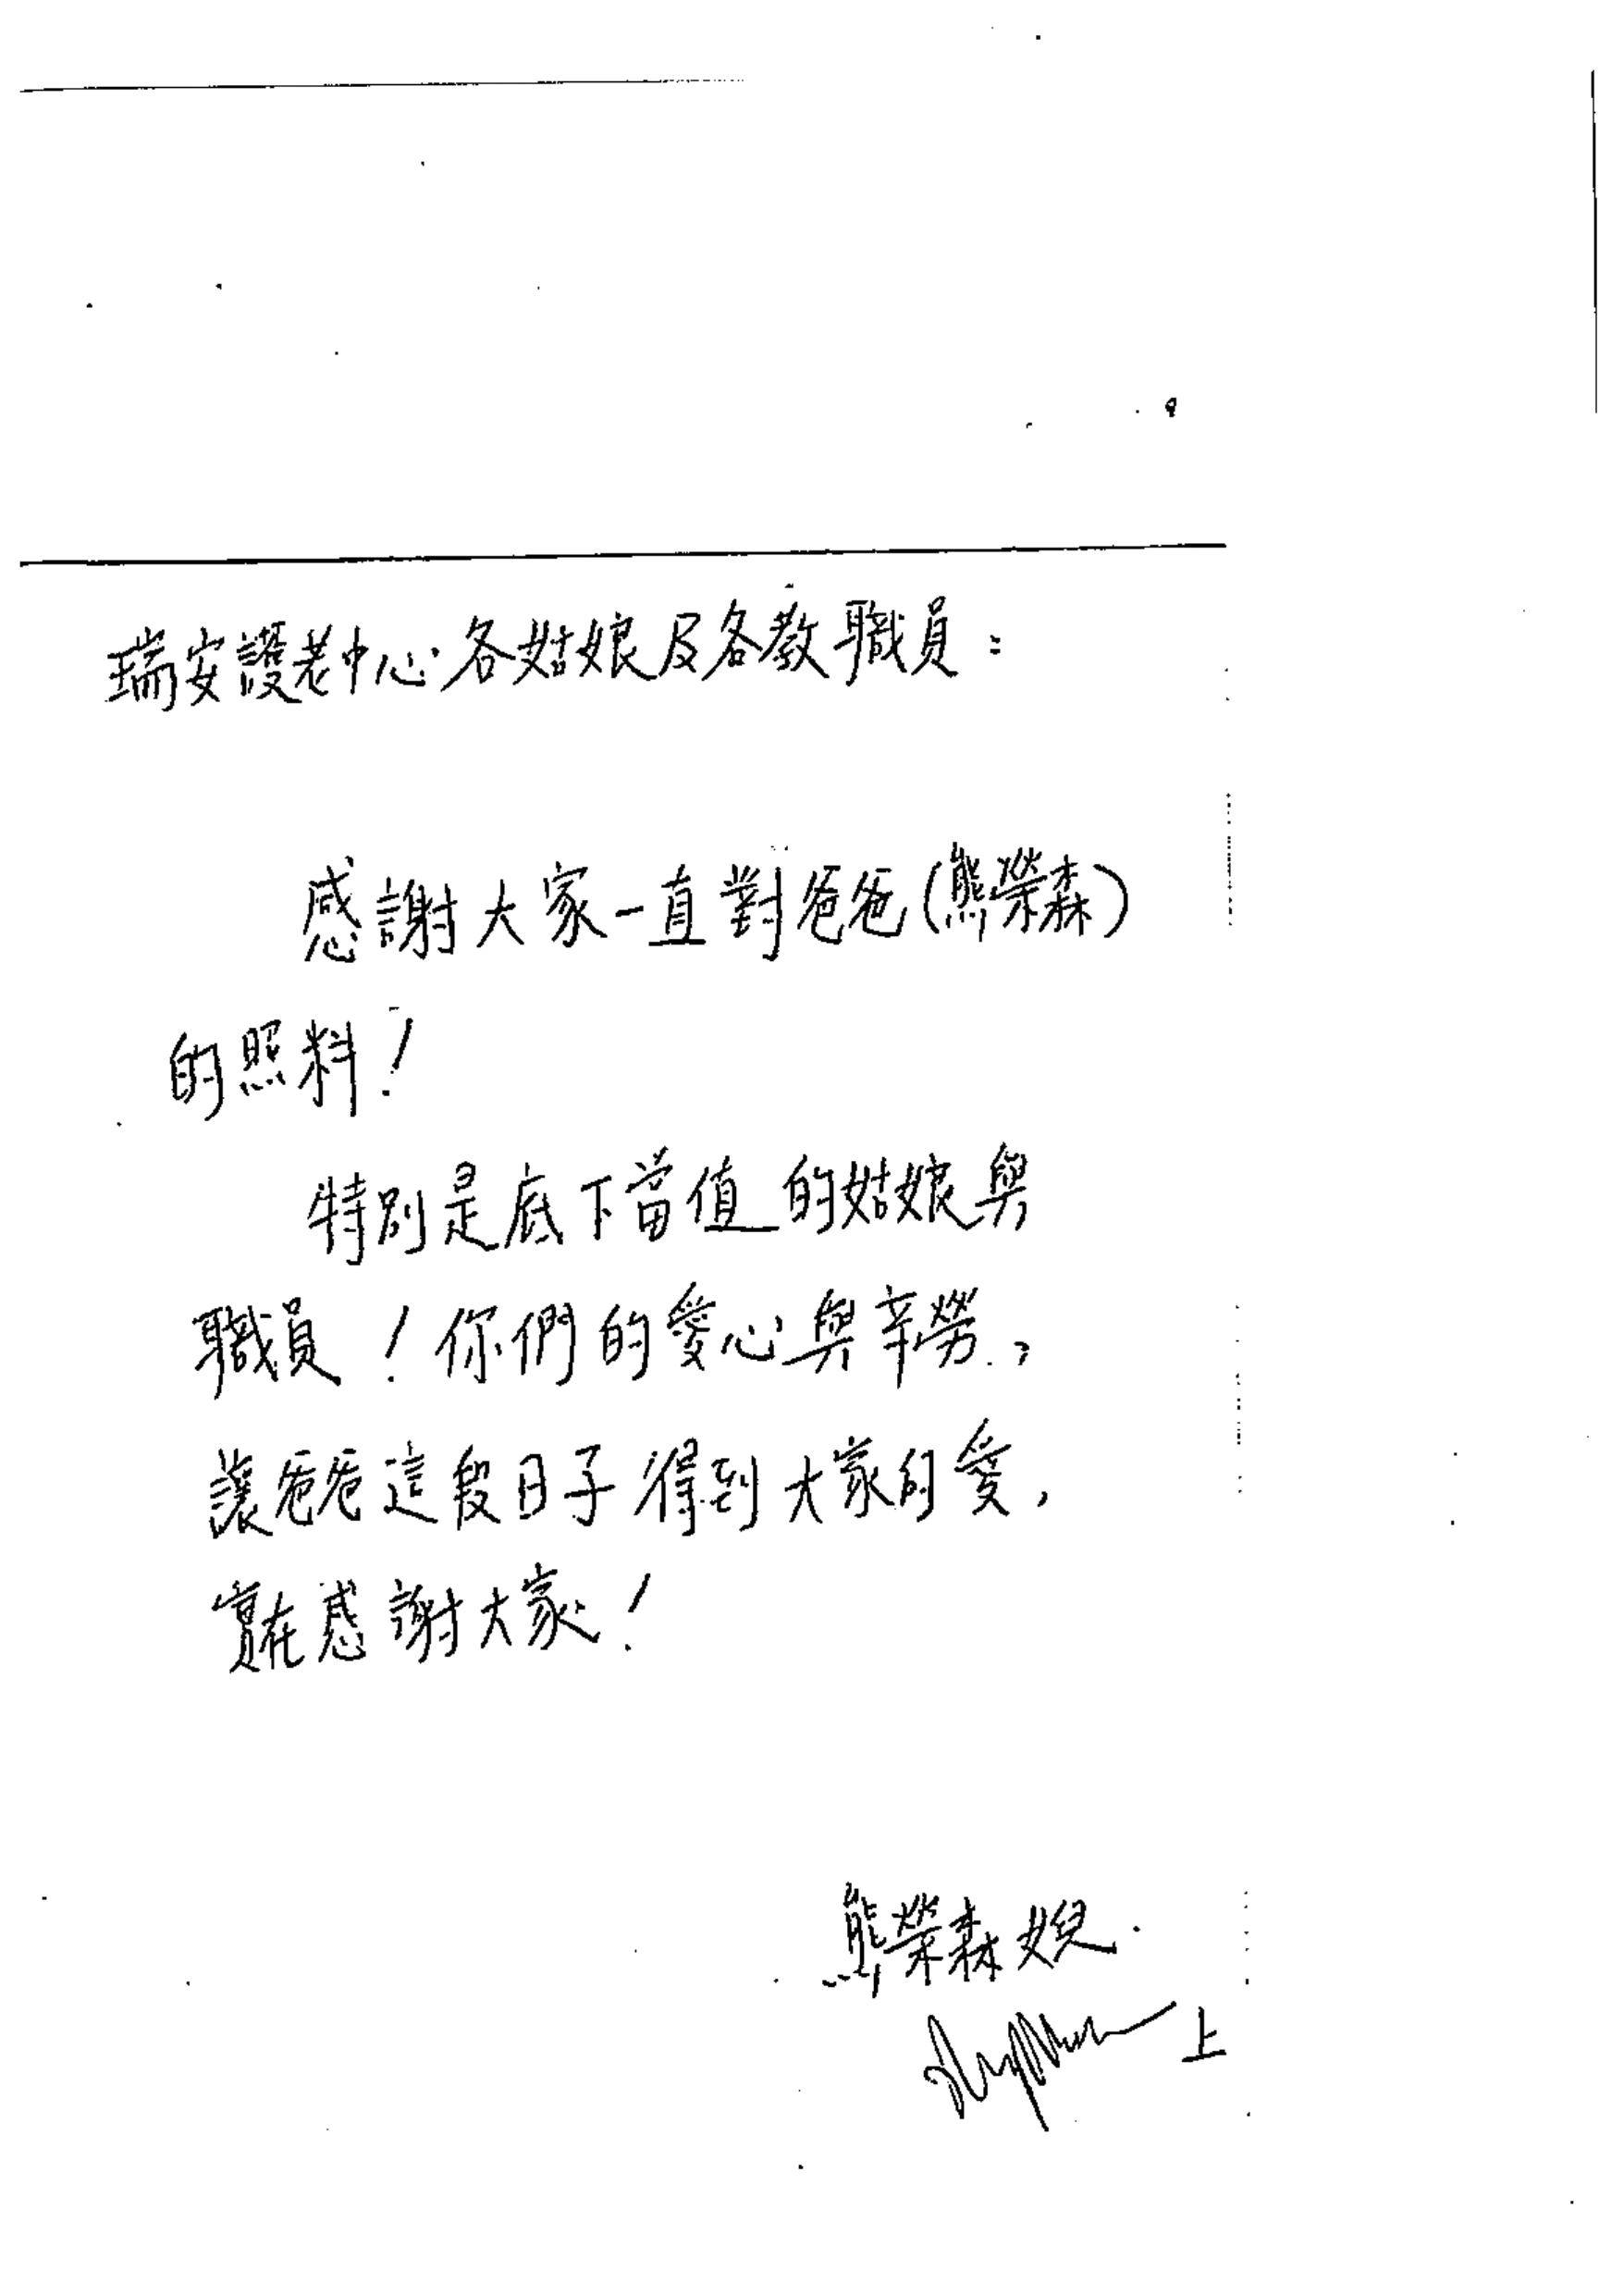 瑞安護老中心各姑娘及各教職員：
感謝大家一直對爸爸(熊榮森)
的照料！
特別是底下當值的姑娘與
職員！你們的愛心與辛勞，
讓爸爸這段日子得到大家的愛，
實在感謝大家！
熊榮森女兒
上